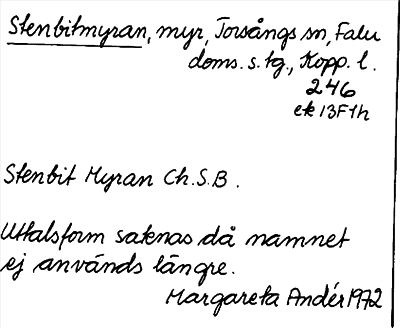 Stenbitmyran, myr, Torsångs sn, Falu
doms. s. tg., Kopp. l.
246
ek 13F1h
Stenbit Myran Ch.S.B.
Uttalsform saknas då namnet
ej används längre.
Margareta Andér 1972